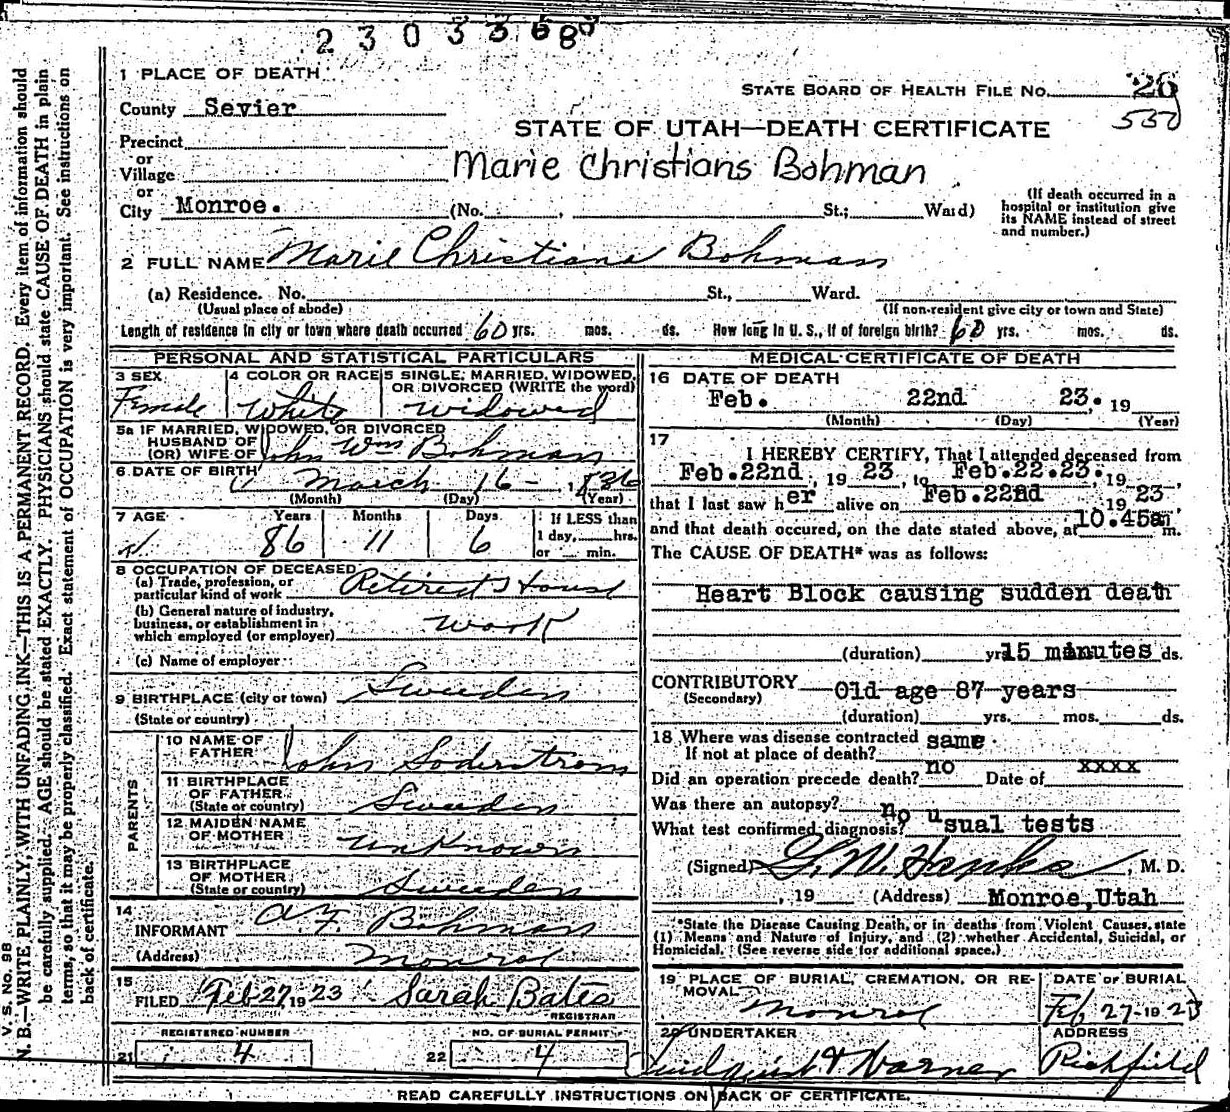 2 3 0 3 3 6 8
1 PLACE OF DEATH
STATE BOARD OF HEALTH FILE No. 26
County Sevier
550
STATE OF UTAH—DEATH CERTIFICATE
Precinct
or
Village
Marie Christians Bohman
or
City Monroe. (No. , St.; Ward)
(If death occurred in a hospital or institution give its NAME instead of street and number.)
2 FULL NAME Marie Christians Bohman
(a) Residence. No. St., Ward.
(Usual place of abode) (If non-resident give city or town and State)
Length of residence in city or town where death occurred 60 yrs. mos. ds. How long in U. S., if of foreign birth? 60 yrs. mos. ds.
PERSONAL AND STATISTICAL PARTICULARS
3 SEX Female
4 COLOR OR RACE White
5 SINGLE, MARRIED, WIDOWED, OR DIVORCED (WRITE the word) Widowed
5a IF MARRIED, WIDOWED, OR DIVORCED
HUSBAND OF
(OR) WIFE OF John Wm Bohman
6 DATE OF BIRTH March 16 - 1836
(Month) (Day) (Year)
7 AGE Years Months Days If LESS than
1 day, hrs.
or min.
86 11 6
8 OCCUPATION OF DECEASED
(a) Trade, profession, or
particular kind of work Retired House
(b) General nature of industry,
business, or establishment in
which employed (or employer) work
(c) Name of employer
9 BIRTHPLACE (city or town) Sweden
(State or country)
PARENTS
10 NAME OF
FATHER John Soderstrom
11 BIRTHPLACE
OF FATHER
(State or country) Sweden
12 MAIDEN NAME
OF MOTHER unknown
13 BIRTHPLACE
OF MOTHER
(State or country) Sweden
14
INFORMANT A. F. Bohman
(Address) Monroe
15
FILED Feb 27, 1923 Sarah Bates
REGISTRAR
REGISTERED NUMBER NO. OF BURIAL PERMIT
21 4 22 4
MEDICAL CERTIFICATE OF DEATH
16 DATE OF DEATH
Feb. 22nd 23. 19
(Month) (Day) (Year)
17
I HEREBY CERTIFY, That I attended deceased from
Feb.22nd , 19 23, to Feb.22.23. , 19 ,
that I last saw her alive on Feb.22nd 19 23 ,
and that death occured, on the date stated above, at 10.45am m.
The CAUSE OF DEATH* was as follows:
Heart Block causing sudden death
(duration) yrs 15 minutes ds.
CONTRIBUTORY Old age 87 years
(Secondary)
(duration) yrs. mos. ds.
18 Where was disease contracted same
If not at place of death?
Did an operation precede death? no Date of xxxx
Was there an autopsy? no
What test confirmed diagnosis? usual tests
(Signed) G. W. Hanks , M. D.
, 19 (Address) Monroe,Utah
*State the Disease Causing Death, or in deaths from Violent Causes, state
(1) Means and Nature of Injury, and (2) whether Accidental, Suicidal, or
Homicidal. (See reverse side for additional space.)
19 PLACE OF BURIAL, CREMATION, OR RE-
MOVAL Monroe
DATE OF BURIAL
Feb 27-1923
20 UNDERTAKER
Lindquist & Warner
ADDRESS
Richfield
READ CAREFULLY INSTRUCTIONS ON BACK OF CERTIFICATE.
V. S. No. 98
N. B.—WRITE PLAINLY, WITH UNFADING INK—THIS IS A PERMANENT RECORD. Every item of information should
be carefully supplied. AGE should be stated EXACTLY. PHYSICIANS should state CAUSE OF DEATH in plain
terms, so that it may be properly classified. Exact statement of OCCUPATION is very important. See instructions on
back of certificate.